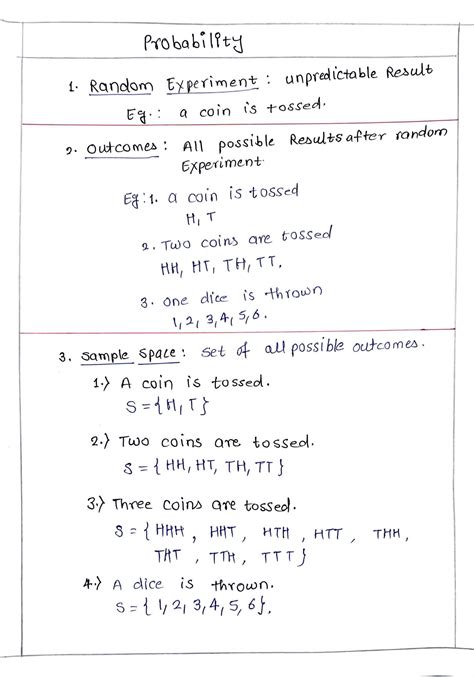 Probability
1. Random Experiment : unpredictable Result
Eg.: a coin is tossed.
2. Outcomes : All possible Results after random
Experiment.
Eg:1. a coin is tossed
H, T
2. Two coins are tossed
HH, HT, TH, TT.
3. One dice is thrown
1, 2, 3, 4, 5, 6.
3. Sample Space : Set of all possible outcomes.
1.) A coin is tossed.
S = {H, T}
2.) Two coins are tossed.
S = { HH, HT, TH, TT }
3.) Three coins are tossed.
S = { HHH , HHT , HTH , HTT , THH ,
THT , TTH , TTT }
4.) A dice is thrown.
S = { 1, 2, 3, 4, 5, 6 }.